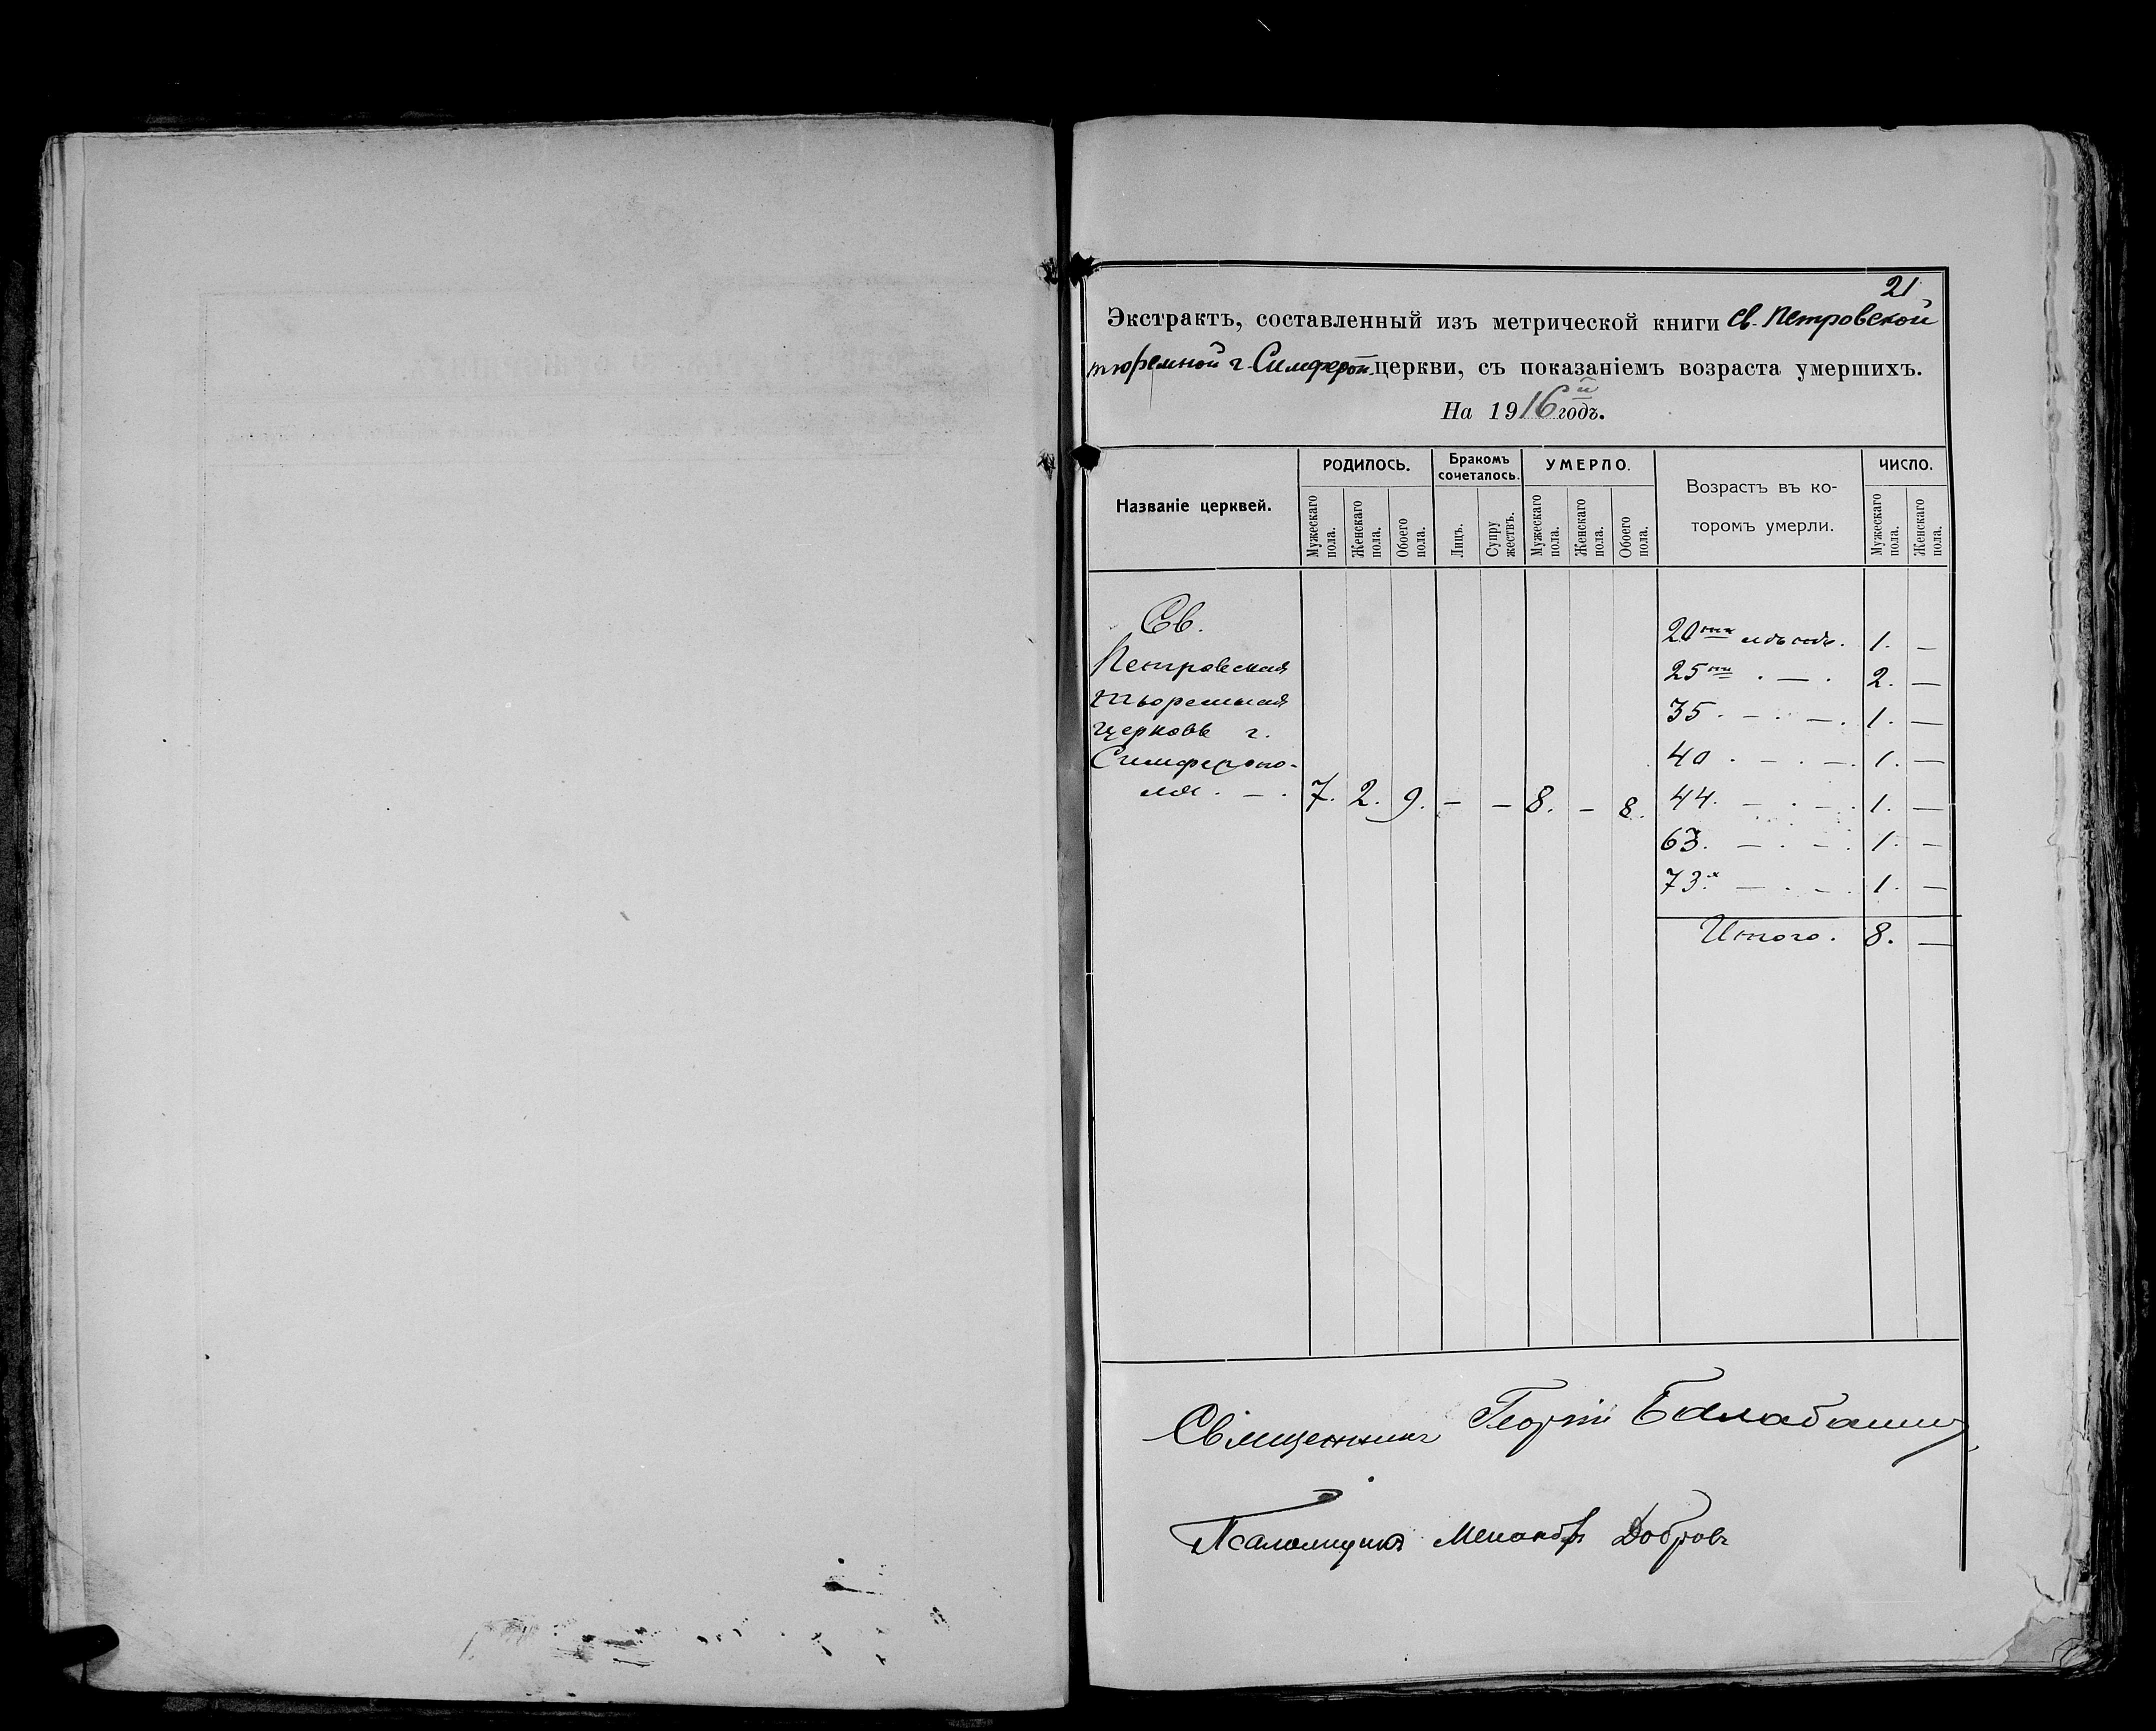 21
Экстрактъ, составленный изъ метрической книги Св. Петровской
тюремной г. Симфероп. церкви, съ показаніемъ возраста умершихъ.
На 1916й годъ.
Названіе церквей.
РОДИЛОСЬ.
Мужескаго пола.
Женскаго пола.
Обоего пола.
Бракомъ сочеталось.
Лицъ.
Супру жествъ.
УМЕРЛО.
Мужескаго пола.
Женскаго пола.
Обоего пола.
Возрастъ въ ко-
торомъ умерли.
ЧИСЛО.
Мужескаго пола.
Женскаго пола.
Св.
Петровская
тюремная
церковь г.
Симферопо-
ля. — . 7. 2. 9. — — 8. — 8.
20 1. —
25ти . — . 2. —
35. — . — . 1. —
40 . — . — . 1. —
44. — . — . 1. —
63. — . — . 1. —
73.х — . — . 1. —
Итого. 8. —
Священникъ Георгій Балабаненко
Псаломщикъ Менандръ Добровъ